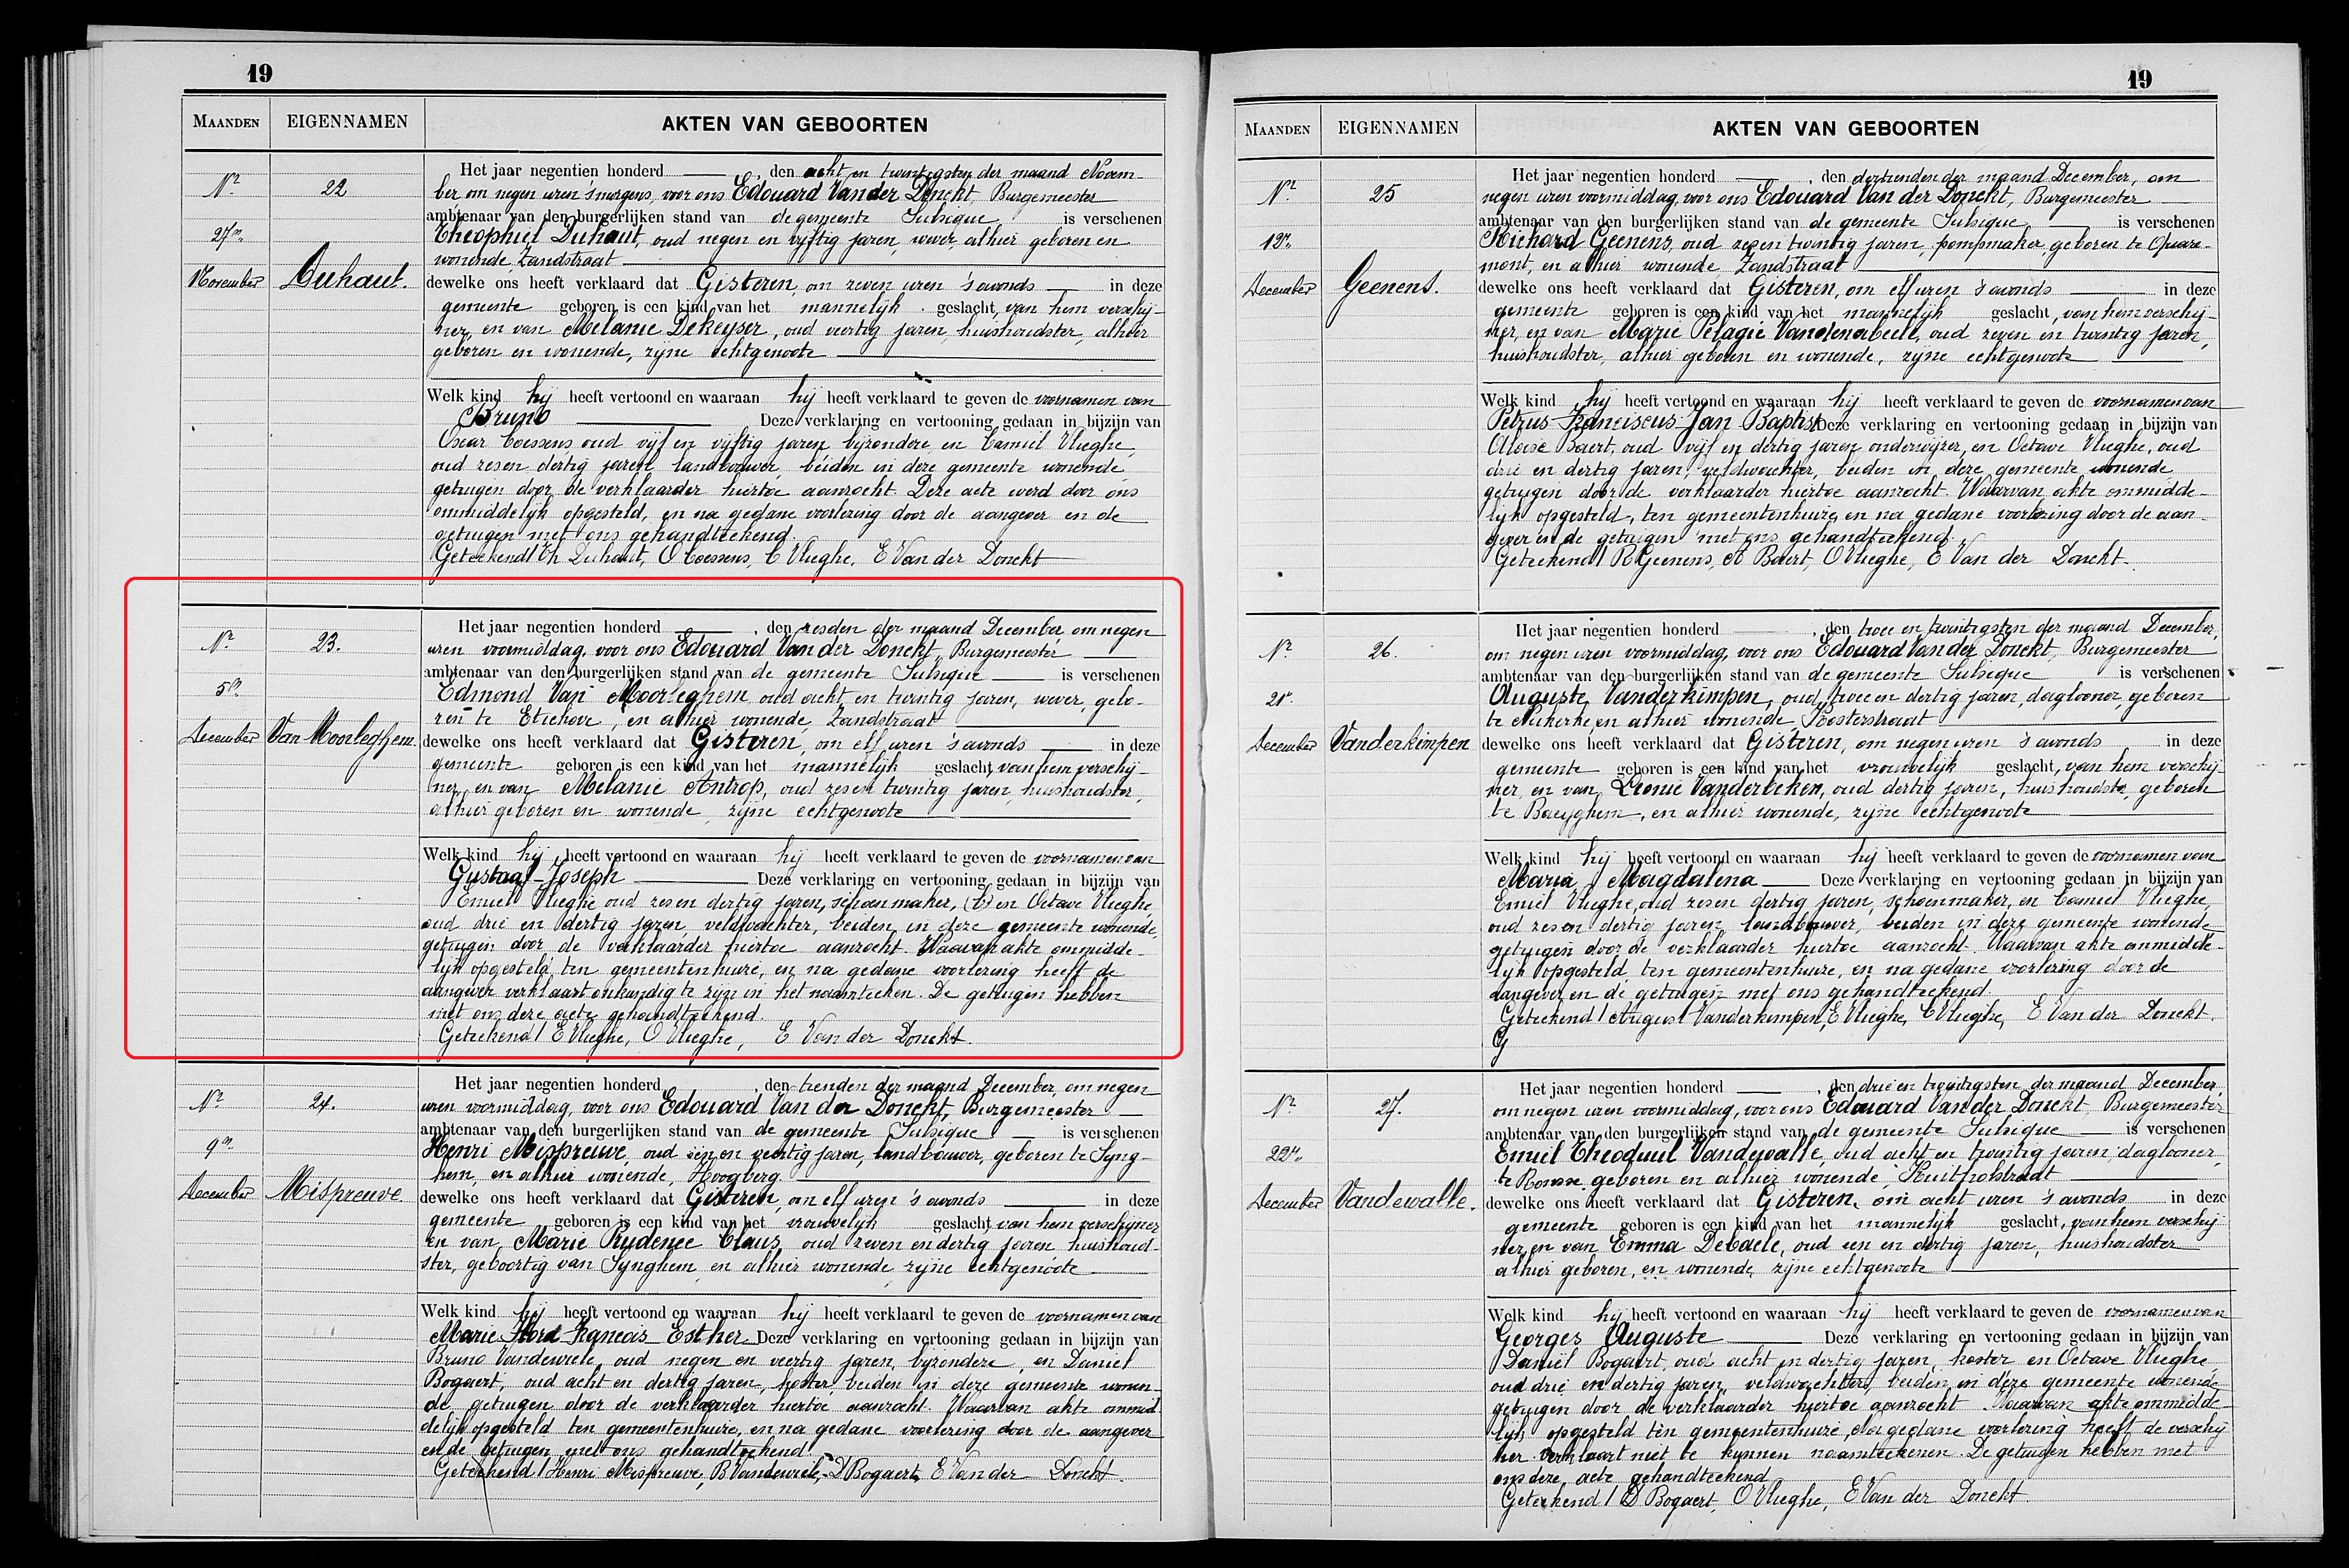 19
MAANDEN EIGENNAMEN AKTEN VAN GEBOORTEN
Nr 22
27n
November Duhaut.
Het jaar negentien honderd , den acht en twintigsten der maand Novem-
ber om negen uren 'smorgens, voor ons Edouard Van der Donckt, Burgemeester
ambtenaar van den burgerlijken stand van de gemeente Sulsique is verschenen
Theophiel Duhaut, oud negen en vijftig jaren, wever, alhier geboren en
wonende, Zandstraat
dewelke ons heeft verklaard dat Gisteren, om zeven uren 's avonds in deze
gemeente geboren is een kind van het mannelijk geslacht, van hem verschij-
ner, en van Melanie Dekeyser, oud veertig jaren, huishoudster, alhier
geboren en wonende, zijne echtgenoote
Welk kind hij heeft vertoond en waaraan hij heeft verklaard te geven de voornamen van
Bruno Deze verklaring en vertooning gedaan in bijzijn van
Oscar Coessens oud vijf en vijftig jaren, bijzondere, en Camiel Vlieghe,
oud zes en dertig jaren, landbouwer, beiden in deze gemeente wonende
getuigen door de verklaarder hiertoe aanzocht. Deze acte werd door ons
ommiddelijk opgesteld, en na gedane voorlezing door de aangever en de
getuigen met ons gehandteekend.
Geteekend/ Th Duhaut, O Coessens, C Vlieghe, E Van der Donckt
Nr 23.
5n
December Van Moorleghem.
Het jaar negentien honderd , den zesden der maand December, om negen
uren voormiddag, voor ons Edouard Van der Donckt, Burgemeester
ambtenaar van den burgerlijken stand van de gemeente Sulsique is verschenen
Edmond Van Moorleghem, oud acht en twintig jaren, wever, gebo-
ren te Etichove, en alhier wonende, Zandstraat
dewelke ons heeft verklaard dat Gisteren, om elf uren 's avonds in deze
gemeente geboren is een kind van het mannelijk geslacht, van hem verschij-
ner, en van Melanie Antrop, oud zes en twintig jaren, huishoudster,
alhier geboren en wonende, zijne echtgenoote
Welk kind hij heeft vertoond en waaraan hij heeft verklaard te geven de voornamen van
Gustaaf-Joseph Deze verklaring en vertooning gedaan in bijzijn van
Emiel Vlieghe oud zes en dertig jaren, schoenmaker, en Octave Vlieghe
oud drie en dertig jaren, veldwachter, beiden in deze gemeente wonende,
getuigen door de verklaarder hiertoe aanzocht. Waarvan akte ommidde-
lijk opgesteld ten gemeentenhuize, en na gedane voorlezing heeft de
aangever verklaart onkundig te zijn in het naamteeken. De getuigen hebben
met ons deze acte gehandteekend.
Geteekend/ E Vlieghe, O Vlieghe, E Van der Donckt.
Nr 24.
9n
December Mispreuve
Het jaar negentien honderd , den tienden der maand December, om negen
uren voormiddag, voor ons Edouard Van der Donckt, Burgemeester
ambtenaar van den burgerlijken stand van de gemeente Sulsique is verschenen
Henri Mispreuve, oud een en veertig jaren, landbouwer, geboren te Syng-
hem, en alhier wonende, Hoogberg
dewelke ons heeft verklaard dat Gisteren, om elf uren 's avonds in deze
gemeente geboren is een kind van het vrouwelijk geslacht, van hem verschijner
en van Marie Prudence Claus, oud zeven en dertig jaren, huishoud-
ster, geboortig van Synghem, en alhier wonende, zijne echtgenoote
Welk kind hij heeft vertoond en waaraan hij heeft verklaard te geven de voornamen van
Marie Flora Francois Esther Deze verklaring en vertooning gedaan in bijzijn van
Bruno Vandewiele, oud negen en veertig jaren, bijzondere, en Daniel
Bogaert, oud acht en dertig jaren, koster, beiden in deze gemeente wonen-
de, getuigen door de verklaarder hiertoe aanzocht. Waarvan akte ommid-
delijk opgesteld ten gemeentenhuize, en na gedane voorlezing door de aangever
en de getuigen met ons gehandteekend.
Geteekend/ Henri Mispreuve, B Vandewiele, D Bogaert, E Van der Donckt.
19
MAANDEN EIGENNAMEN AKTEN VAN GEBOORTEN
Nr 25
12n
December Geenens.
Het jaar negentien honderd , den dertienden der maand December, om
negen uren voormiddag, voor ons Edouard Van der Donckt, Burgemeester
ambtenaar van den burgerlijken stand van de gemeente Sulsique is verschenen
Richard Geenens, oud zes en twintig jaren, pompmaker, geboren te Quare-
mont, en alhier wonende Zandstraat
dewelke ons heeft verklaard dat Gisteren, om elf uren 's avonds in deze
gemeente geboren is een kind van het mannelijk geslacht, van hem verschij-
ner, en van Marie Pelagie Vandenabeele, oud zeven en twintig jaren,
huishoudster, alhier geboren en wonende, zijne echtgenoote
Welk kind hij heeft vertoond en waaraan hij heeft verklaard te geven de voornamen van
Petrus Franciscus Jan Baptist Deze verklaring en vertooning gedaan in bijzijn van
Aloise Baert, oud vijf en dertig jaren onderwijzer, en Octave Vlieghe, oud
drie en dertig jaren, veldwachter, beiden in deze gemeente wonende
getuigen door de verklaarder hiertoe aanzocht. Waarvan akte ommidde-
lijk opgesteld, ten gemeentenhuize, en na gedane voorlezing door de aan-
gever en de getuigen met ons gehandteekend.
Geteekend/ R Geenens, A Baert, O Vlieghe, E Van der Donckt.
Nr 26.
21n
December Vanderkimpen
Het jaar negentien honderd , den twee en twintigsten der maand December,
om negen uren voormiddag, voor ons Edouard Van der Donckt, Burgemeester
ambtenaar van den burgerlijken stand van de gemeente Sulsique is verschenen
Auguste Vanderkimpen, oud twee en dertig jaren, daglooner, geboren
te Nukerke, en alhier wonende, Kosterstraat
dewelke ons heeft verklaard dat Gisteren, om negen uren 's avonds in deze
gemeente geboren is een kind van het vrouwelijk geslacht, van hem verschij-
ner, en van Leonie Vanderbeken, oud dertig jaren, huishoudster, geboren
te Baeyghem, en alhier wonende, zijne echtgenoote
Welk kind hij heeft vertoond en waaraan hij heeft verklaard te geven de voornamen van
Maria Magdalena Deze verklaring en vertooning gedaan in bijzijn van
Emiel Vlieghe, oud zes en dertig jaren, schoenmaker, en Camiel Vlieghe,
oud zes en dertig jaren, landbouwer, beiden in deze gemeente wonende
getuigen door de verklaarder hiertoe aanzocht. Waarvan akte ommidde-
lijk opgesteld ten gemeentenhuize, en na gedane voorlezing door de
aangever en de getuigen met ons gehandteekend.
Geteekend/ August Vanderkimpen, E Vlieghe, C Vlieghe, E Van der Donckt.
G
Nr 27.
22n
December Vandewalle.
Het jaar negentien honderd , den drie en twintigsten der maand December
om negen uren voormiddag, voor ons Edouard Van der Donckt, Burgemeester
ambtenaar van den burgerlijken stand van de gemeente Sulsique is verschenen
Emiel Theoduul Vandewalle, oud acht en twintig jaren, daglooner,
te Ronsse geboren en alhier wonende,
dewelke ons heeft verklaard dat Gisteren, om acht uren 's avonds in deze
gemeente geboren is een kind van het mannelijk geslacht, van hem verschij-
ner, en van Emma Debaele, oud een en dertig jaren, huishoudster
alhier geboren, en wonende, zijne echtgenoote
Welk kind hij heeft vertoond en waaraan hij heeft verklaard te geven de voornamen van
Georges Auguste Deze verklaring en vertooning gedaan in bijzijn van
Daniël Bogaert, oud acht en dertig jaren, koster en Octave Vlieghe
oud drie en dertig jaren, veldwachter, beiden in deze gemeente wonende
getuigen door de verklaarder hiertoe aanzocht. Waarvan akte ommidde-
lijk opgesteld ten gemeentenhuize, na gedane voorlezing heeft de verschij-
ner verklaart niet te kunnen naamteekenen. De getuigen hebben met
ons deze acte gehandteekend
Geteekend/ D Bogaert, O Vlieghe, E Van der Donckt.